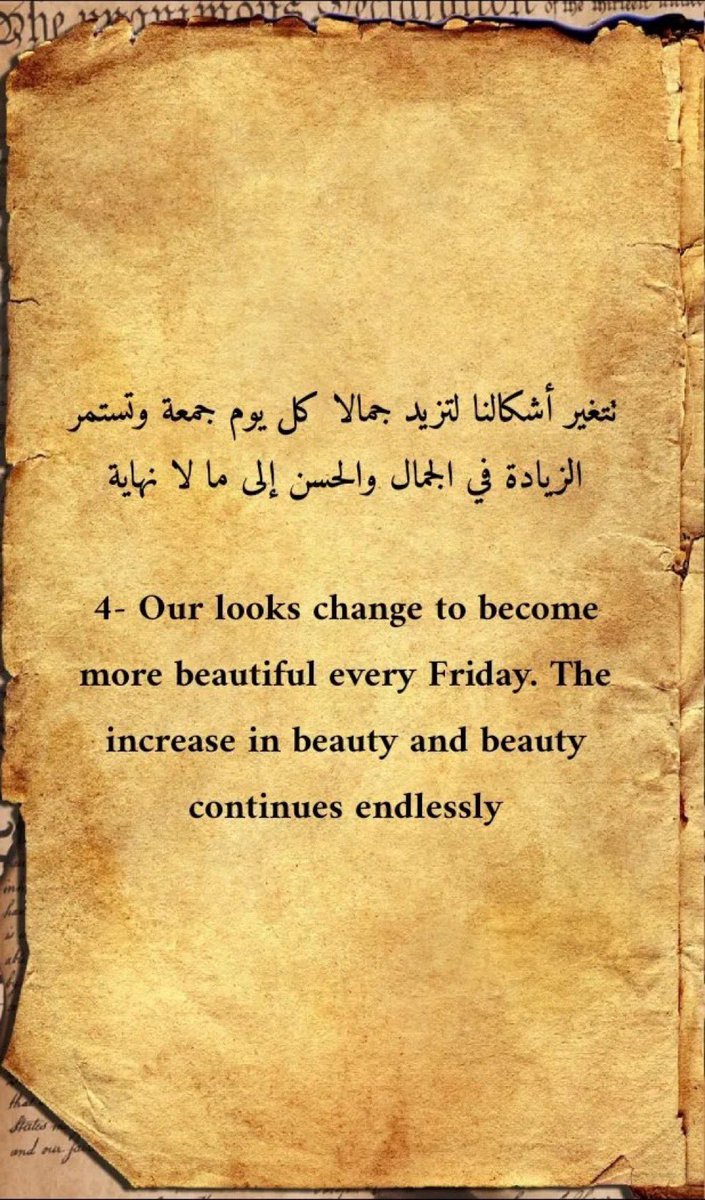 The unanimous Declaration of the thirteen united
تتغير أشكالنا لتزيد جمالا كل يوم جمعة وتستمر
الزيادة في الجمال والحسن إلى ما لا نهاية
4- Our looks change to become
more beautiful every Friday. The
increase in beauty and beauty
continues endlessly
that
States
and our